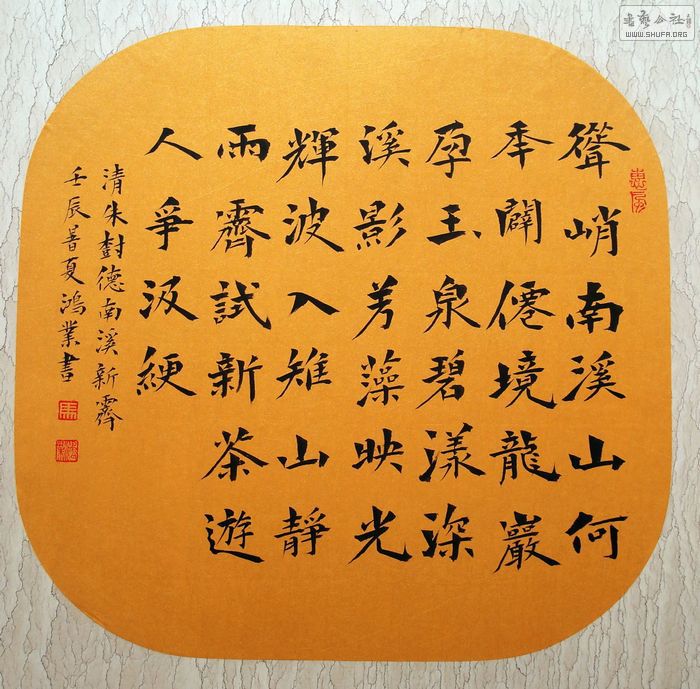 聳峭南溪山何
秊闢僊境龍巖
孕玉泉碧漾深
溪影芳藻映光
輝波入雉山靜
雨霽試新茶遊
人爭汲綆
清朱樹德南溪新霽
壬辰暑夏鴻業書
書藝公社
WWW.SHUFA.ORG